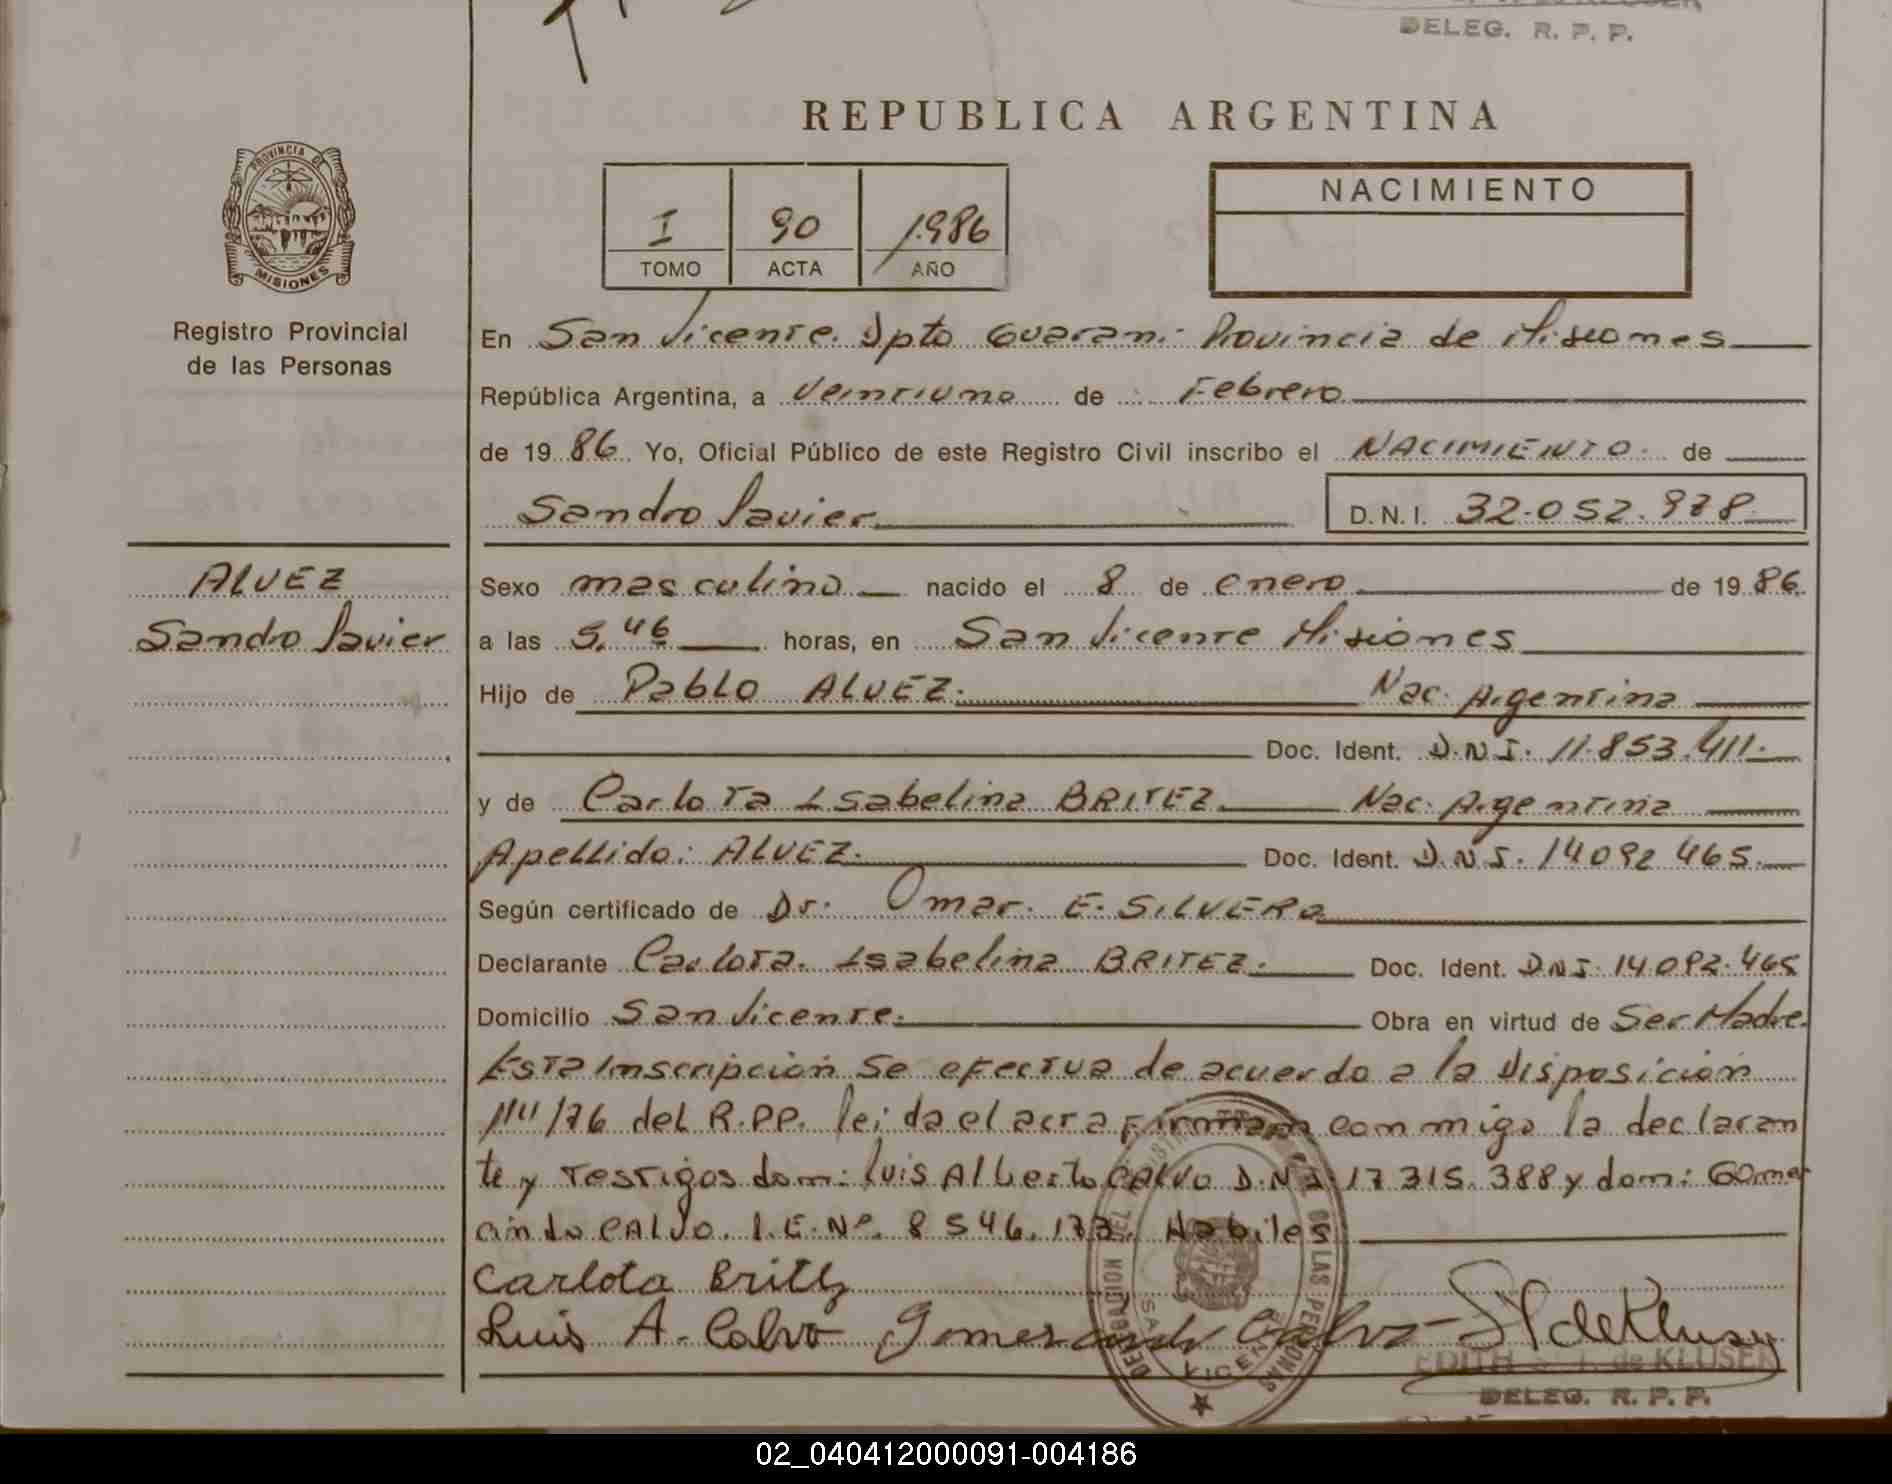 DELEG. R. P. P.
REPUBLICA ARGENTINA
PROVINCIA DE
MISIONES
Registro Provincial
de las Personas
I 90 1986
TOMO ACTA AÑO
NACIMIENTO
En San Vicente Dpto Guarani Provincia de Misiones
República Argentina, a Veintiuno de Febrero
de 1986 Yo, Oficial Público de este Registro Civil inscribo el NACIMIENTO de
Sandro Javier D.N.I. 32.052.978
ALVEZ
Sandro Javier
Sexo masculino nacido el 8 de enero de 1986.
a las 5,46 horas, en San Vicente Misiones
Hijo de Pablo ALVEZ. Nac. Argentina
Doc. Ident. D.N.I. 11.853.411.
y de Carlota Isabelina BRITEZ Nac. Argentina
Apellido: ALVEZ. Doc. Ident. D.N.I. 14092465.
Según certificado de Dr. Omar E. SILVERO
Declarante Carlota Isabelina BRITEZ. Doc. Ident. DNI. 14.092.465
Domicilio San Vicente. Obra en virtud de Ser Madre.
Esta Inscripción se efectua de acuerdo a la Disposición
/76 del R.P.P. leida el acta Firman conmigo la declaran
te y testigos don: Luis Alberto CALVO D.N.I. 17315.388 y don: Gomer
cindo CALVO. L.E.Nº. 8546.173. Habiles
Carlota Britez
Luis A. Calvo Gomercindo Calvo
DELEGACION DEL REGISTRO DE LAS PERSONAS
SAN VICENTE
EDITH de KLUSEN
DELEG. R. P. P.
02_040412000091-004186